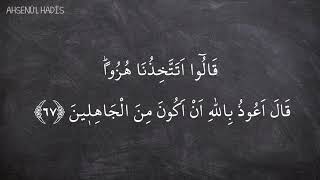 AHSENÜ'L HADİS
قَالُٓوا اَتَتَّخِذُنَا هُزُواًۜ
قَالَ اَعُوذُ بِاللّٰهِ اَنْ اَكُونَ مِنَ الْجَاهِل۪ينَ ﴿٦٧﴾